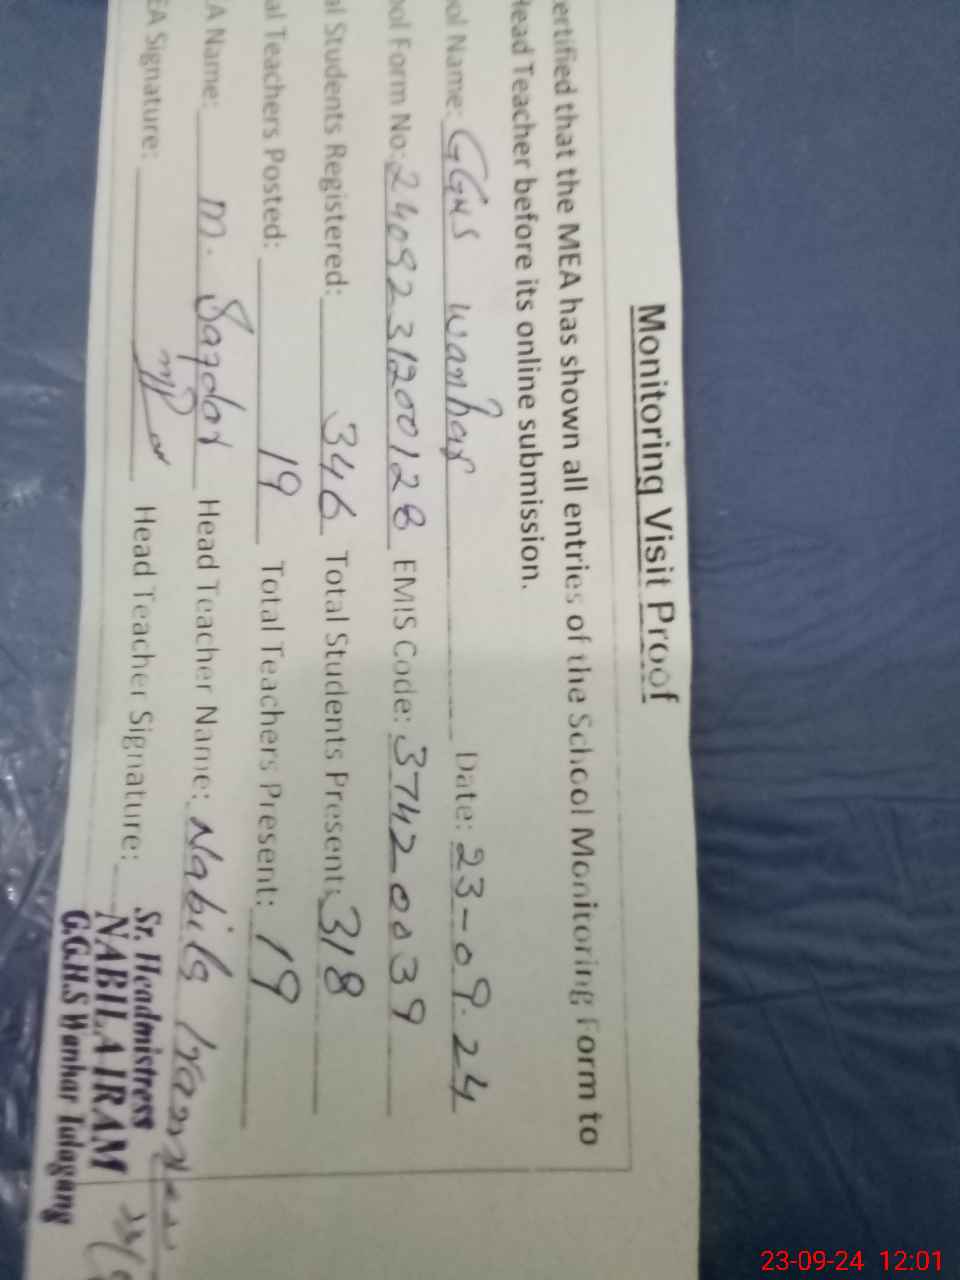 Monitoring Visit Proof
ertified that the MEA has shown all entries of the School Monitoring Form to
Head Teacher before its online submission.
ol Name: GGHS wanhar Date: 23-09-24
ool Form No: 2409231200128 EMIS Code: 37420039
al Students Registered: 346 Total Students Present: 318
al Teachers Posted: 19 Total Teachers Present: 19
A Name: M. Safdar Head Teacher Name: Nabila Iram
EA Signature: Head Teacher Signature:
Sr. Headmistress
NABILA IRAM
G.G.H.S Wanhar Talagang
23-09-24 12:01